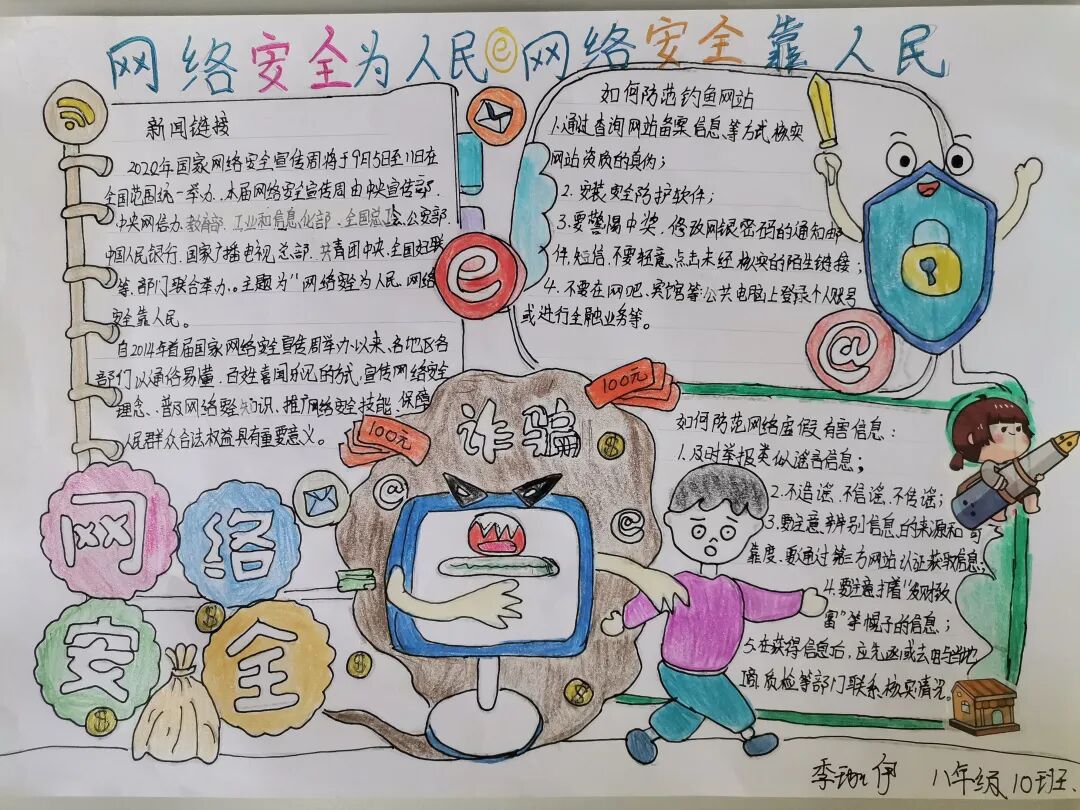 网络安全为人民e网络安全靠人民
新闻链接
2022年国家网络安全宣传周将于9月5日至11日在
全国范围统一举办、本届网络安全宣传周由中央宣传部、
中央网信办、教育部、工业和信息化部、全国总工会、公安部、
中国人民银行、国家广播电视总部、共青团中央、全国妇联
等、部门联合举办。主题为“网络安全为人民,网络
安全靠人民。
自2014年首届国家网络安全宣传周举办以来、各地区各
部门以通俗易懂、百姓喜闻乐见的方式,宣传网络安全
理念、普及网络安全知识、推广网络安全技能、保障
人民群众合法权益具有重要意义。
如何防范钓鱼网站
1.通过查询网站备案信息、等方式核实
网站资质的真伪;
2.安装安全防护软件;
3.要警惕中奖、修改网银密码的通知邮
件、短信、不要轻意点击未经核实的陌生链接;
4.不要在网吧、宾馆等公共电脑上登录个人账号
或进行金融业务等。
e
@
诈骗
100元
100元
@
@
如何防范网络虚假有害信息:
1.及时举报类似谣言信息;
2.不造谣、不信谣、不传谣;
3.要注意辨别信息的来源和可
靠度、要通过第三方网站认证获取信息;
4.要注意打着“发财致
富”等幌子的信息;
5.在获得信息后,应先函或去电与当地
商、质检等部门联系,核实情况。
网络
安全
$
$
$
$
$
李 伊 八年级10班、